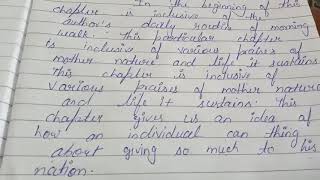 In the beginning of this
chapter is inclusive of the
author's daily routine of morning
walk. This particular chapter
is inclusive of various praises of
mother nature and life it sustains.
This chapter is inclusive of
various praises of mother nature
and life it sustains. This
chapter gives us an idea of
how an individual can thing
about giving so much to his
nation.